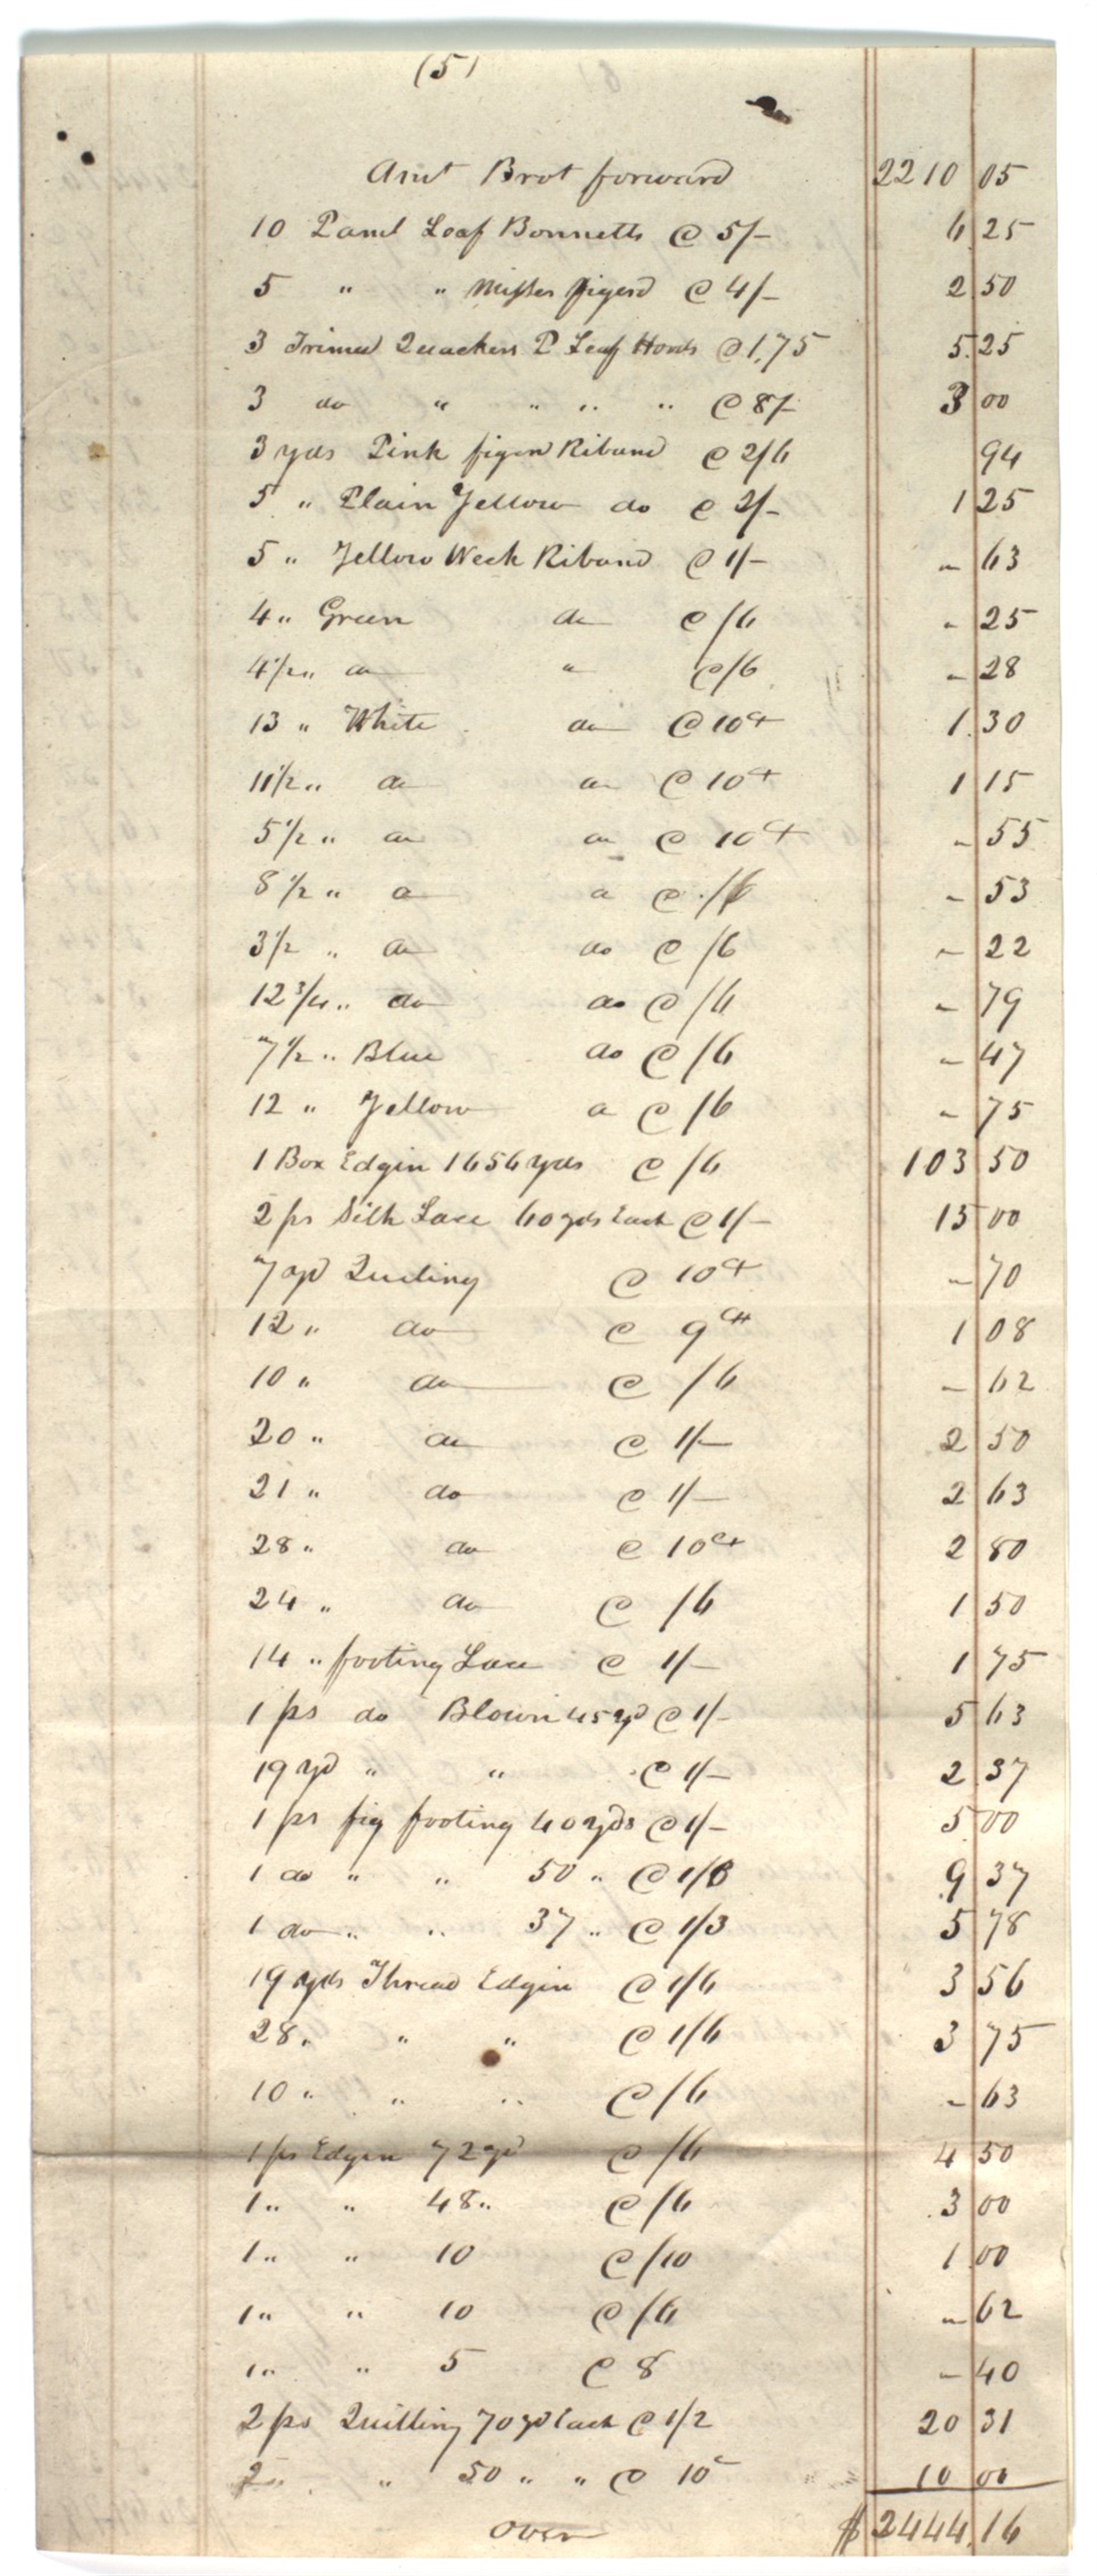 (5)
Amt Brot forward 2210 05
10 Pamel Leaf Bonnetts @ 5/- 6 25
5 " " Misses figerd @ 4/- 2 50
3 Trimed Quackers P Leaf Hoods @ 1,75 5.25
3 do " " " " @ 8/- 3 00
3 yds Pink figerd Riband @ 2/6 94
5 " Plain Yellow do @ 2/- 1 25
5 " Yellow Neck Riband @ 1/- - 63
4 " Green do @ /6 - 25
4 1/2 " do " @ /6 - 28
13 " White do @ 10ct 1.30
11 1/2 " do do @ 10ct 1 15
5 1/2 " do do @ 10ct - 55
8 1/2 " do do @ /6 - 53
3 1/2 " do do @ /6 - 22
12 3/4 " do do @ /6 - 79
7 1/2 " Blue do @ /6 - 47
12 " Yellow do @ /6 - 75
1 Box Edgin 1656 yds @ /6 103 50
2 ps Silk Lace 60 yds Each @ 1/- 15 00
7 yd Quiling @ 10ct - 70
12 " do @ 9ct 1 08
10 " do @ /6 - 62
20 " do @ 1/- 2 50
21 " do @ 1/- 2 63
28 " do @ 10ct 2 80
24 " do @ /6 1 50
14 " footing Lace @ 1/- 1 75
1 ps do Blown 45 yd @ 1/- 5 63
19 yd " " @ 1/- 2 37
1 ps fig footing 40 yds @ 1/- 5 00
1 do " " 50 " @ 1/6 9 37
1 do " " 37 " @ 1/3 5 78
19 yds Thread Edgin @ 1/6 3 56
28 " " " @ 1/6 3 75
10 " " " @ /6 - 63
1 ps Edgin 72 yd @ /6 4 50
1 " " 48 " @ /6 3 00
1 " " 10 @ /10 1 00
1 " " 10 @ /6 - 62
1 " " 5 @ 8 - 40
2 ps Quilling 70 yd Each @ 1/2 20 31
2 " " 50 " " @ 10c 10 00
over $ 2444.16